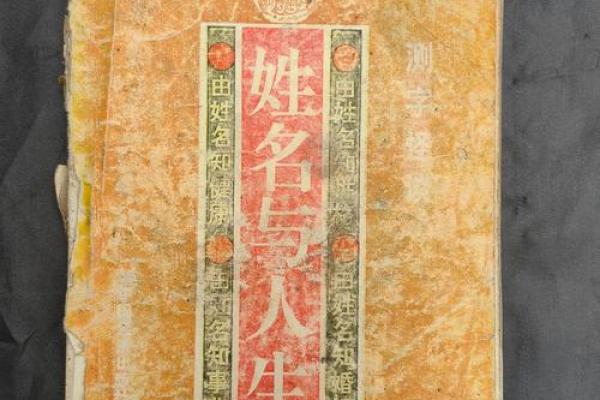 姓名与人生
由姓名知健康
由姓名知事
由姓名知性格
由姓名知婚
测字